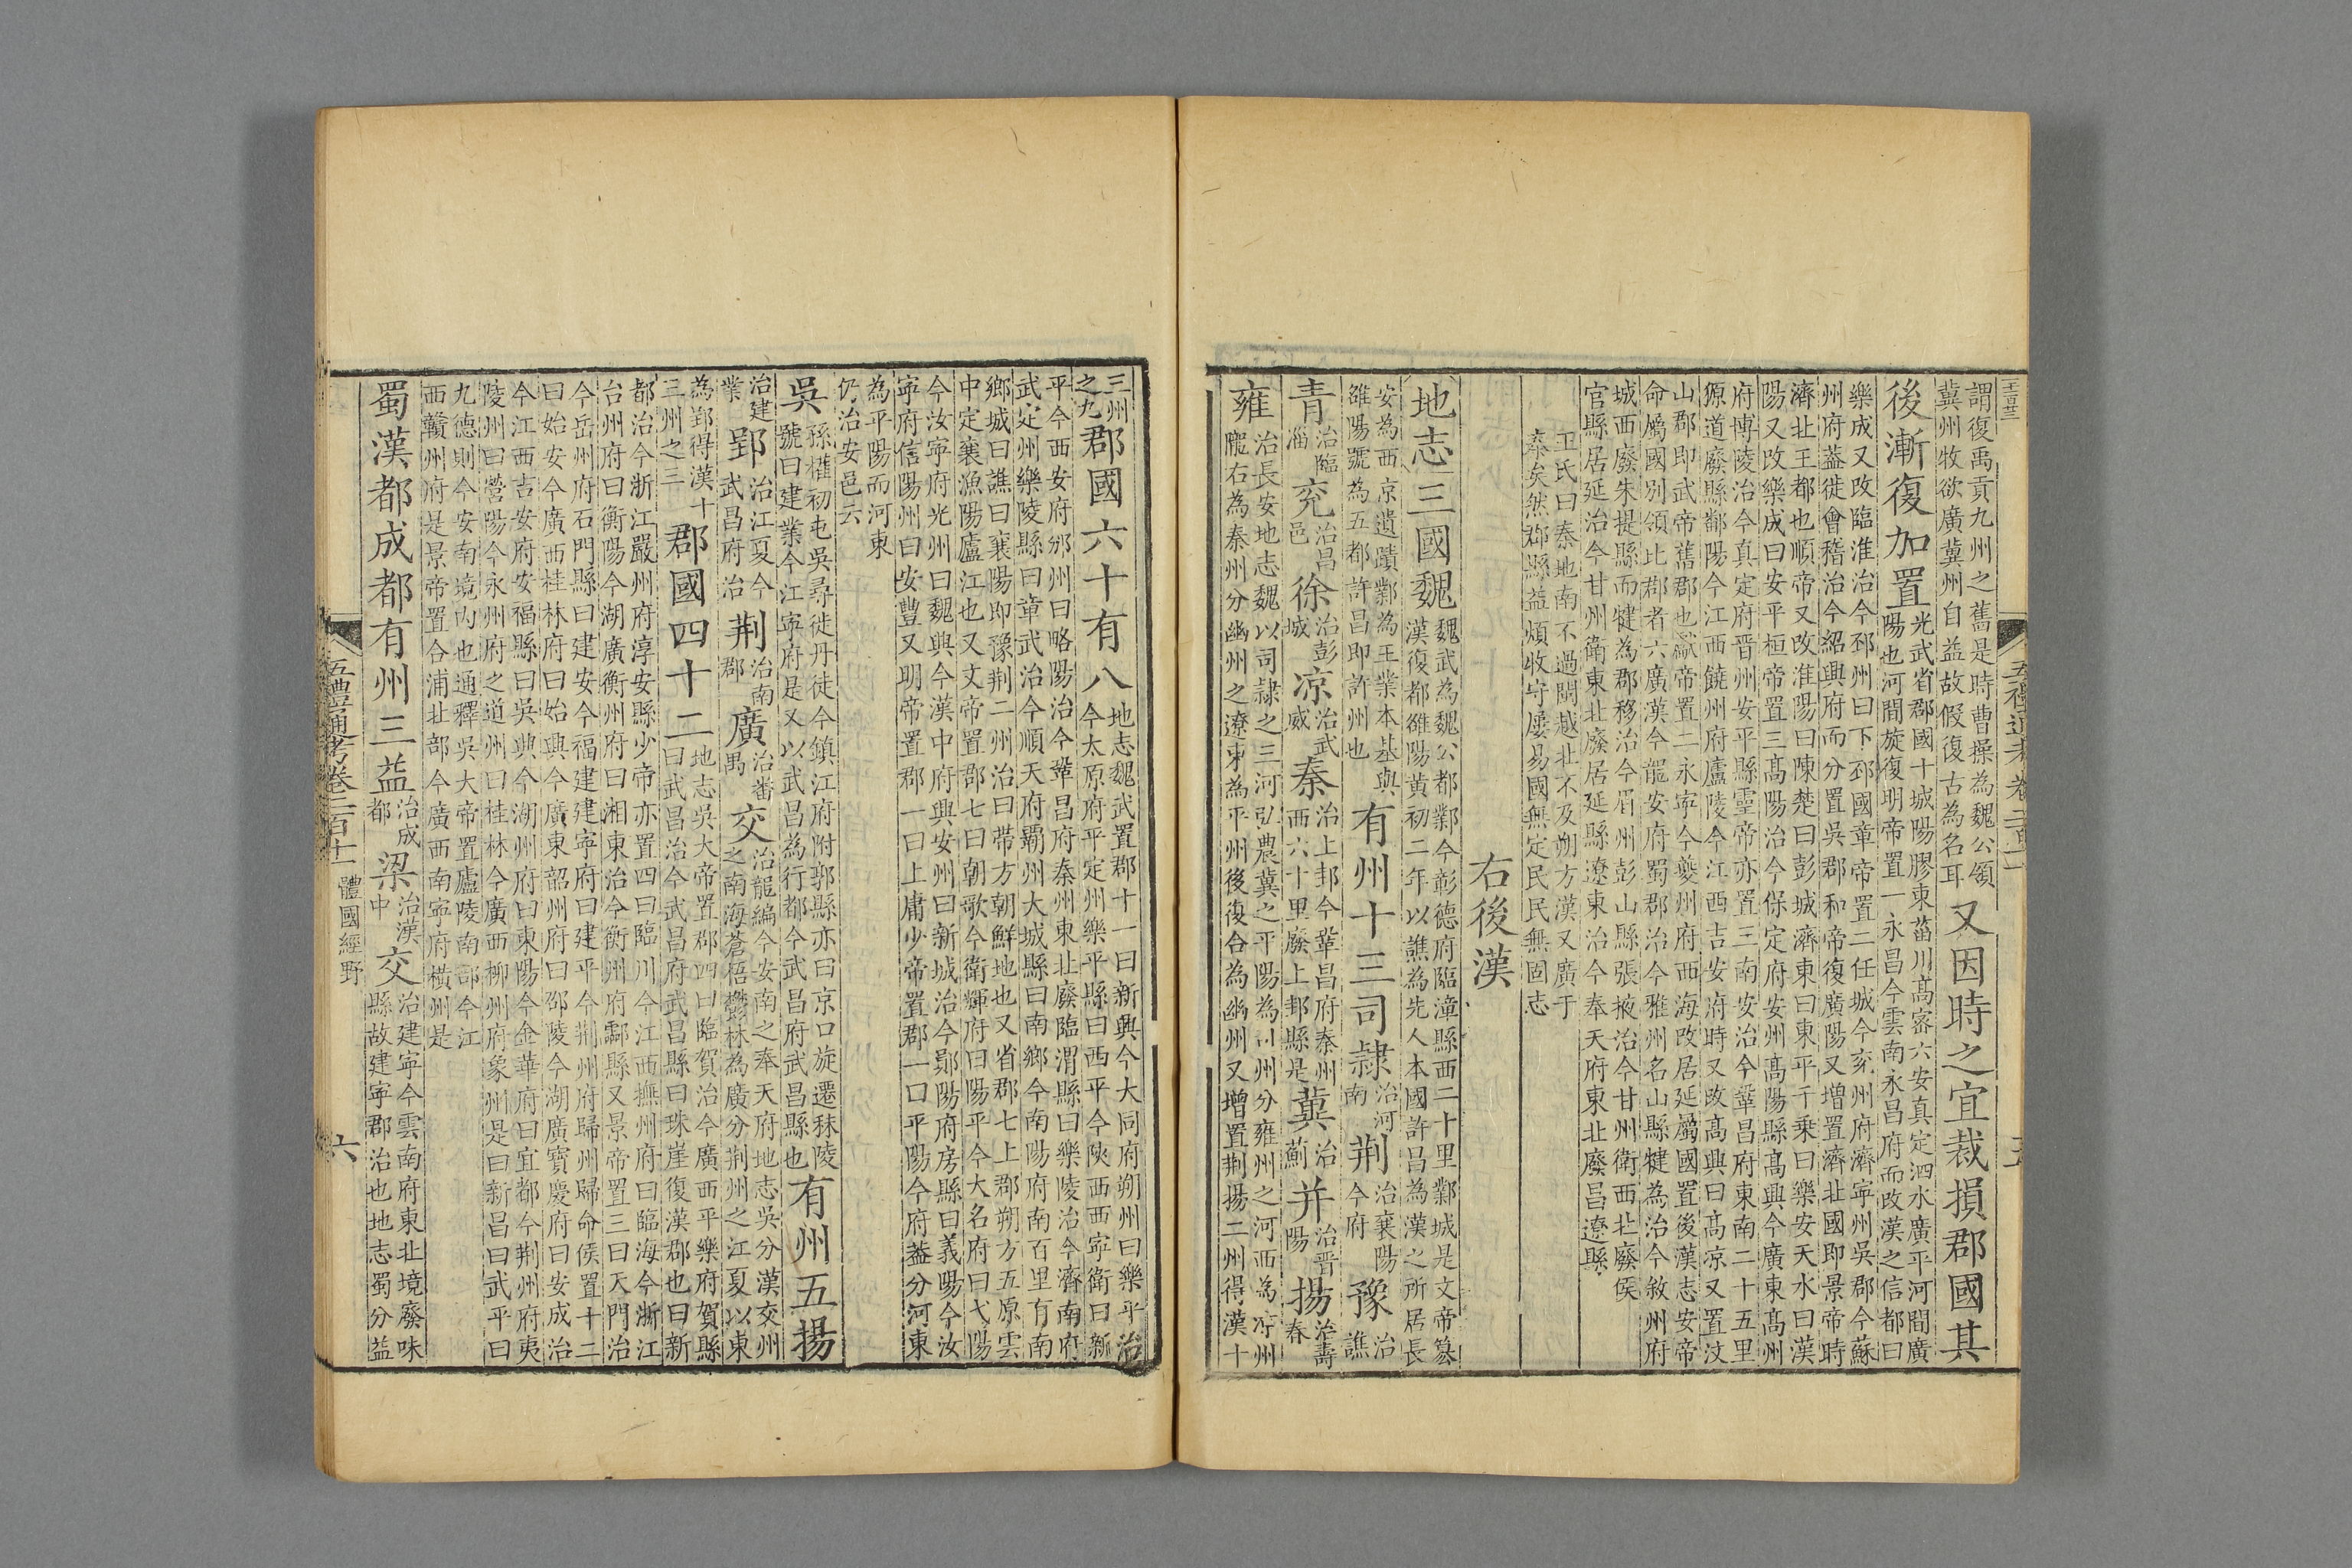 謂復禹貢九州之舊是時曹操為魏公領
冀州牧欲廣冀州自益故假復古為名耳
又因時之宜裁損郡國其
後漸復加置
光武省郡國十城陽膠東菑川高密六安真定泗水廣平河間廣
陽也河間旋復明帝置一永昌今雲南永昌府而改漢之信都曰
樂成又改臨淮治今邳州曰下邳國章帝置二任城今兖州府濟寧州吳郡今蘇
州府葢徙會稽治今紹興府而分置吳郡和帝復廣陽又增置濟北國即景帝時
濟北王都也順帝又改淮陽曰陳楚曰彭城濟東曰東平千乗曰樂安天水曰漢
陽又改樂成曰安平桓帝置三高陽治今保定府安州高陽縣高興今廣東高州
府博陵治今真定府晉州安平縣靈帝亦置三南安治今鞏昌府東南二十五里
獂道廢縣鄱陽今江西饒州府廬陵今江西吉安府時又改高興曰高凉又置汶
山郡即武帝舊郡也獻帝置二永寧今夔州府西海改居延屬國置後漢志安帝
命屬國別領比郡者六廣漢今龍安府蜀郡治今雅州名山縣犍為治今敘州府
城西廢朱提縣而犍為郡移治今眉州彭山縣張掖治今甘州衛西北廢侯
官縣居延治今甘州衛東北廢居延縣遼東治今奉天府東北廢昌遼縣
王氏曰秦地南不過閩越北不及朔方漢又廣于
秦矣然郡縣益煩收守屢易國無定民民無固志
右後漢
地志三國魏
魏武為魏公都鄴今彰德府臨漳縣西二十里鄴城是文帝簒
漢復都雒陽黄初二年以譙為先人本國許昌為漢之所居長
安為西京遺蹟鄴為王業本基與
雒陽號為五都許昌即許州也
有州十三司隷
治河
南
荆
治襄陽
今府
豫
治
譙
青
治臨
淄
兖
治昌
邑
徐
治彭
城
凉
治武
威
秦
治上邽今鞏昌府秦州
西六十里廢上邽縣是
冀
治
薊
并
治晋
陽
揚
治壽
春
雍
治長安地志魏以司隷之三河弘農冀之平陽為司州分雍州之河西為凉州
隴右為秦州分幽州之遼東為平州後復合為幽州又增置荆揚二州得漢十
三州
之九
郡國六十有八
地志魏武置郡十一曰新興今大同府朔州曰樂平治
今太原府平定州樂平縣曰西平今陜西西寧衛曰新
平今西安府邠州曰略陽治今鞏昌府秦州東北廢臨渭縣曰樂陵治今濟南府
武定州樂陵縣曰章武治今順天府霸州大城縣曰南鄉今南陽府南百里有南
鄉城曰譙曰襄陽即豫荆二州治曰帶方朝鮮地也又省郡七上郡朔方五原雲
中定襄漁陽廬江也又文帝置郡七曰朝歌今衛輝府曰陽平今大名府曰弋陽
今汝寧府光州曰魏興今漢中府興安州曰新城治今鄖陽府房縣曰義陽今汝
寧府信陽州曰安豐又明帝置郡一曰上庸少帝置郡一曰平陽今府葢分河東
為平陽而河東
仍治安邑云
吳
孫權初屯吳尋徙丹徒今鎮江府附郭縣亦曰京口旋遷秣陵
號曰建業今江寧府是又以武昌為行都今武昌府武昌縣也
有州五揚
治建
業
郢
治江夏今
武昌府治
荆
治南
郡
廣
治番
禺
交
治龍編今安南之奉天府地志吳分漢交州
之南海蒼梧鬱林為廣分荆州之江夏以東
為郢得漢十
三州之三
郡國四十二
地志吳大帝置郡四曰臨賀治今廣西平樂府賀縣
曰武昌治今武昌府武昌縣曰珠崖復漢郡也曰新
都治今浙江嚴州府淳安縣少帝亦置四曰臨川今江西撫州府曰臨海今浙江
台州府曰衡陽今湖廣衡州府曰湘東治今衡州府酃縣又景帝置三曰天門治
今岳州府石門縣曰建安今福建建寧府曰建平今荆州府歸州歸命侯置十二
曰始安今廣西桂林府曰始興今廣東韶州府曰邵陵今湖廣寶慶府曰安成治
今江西吉安府安福縣曰吳興今湖州府曰東陽今金華府曰宜都今荆州府夷
陵州曰營陽今永州府之道州曰桂林今廣西柳州府象州是曰新昌曰武平曰
九德則今安南境内也通釋吳大帝置廬陵南部今江
西贛州府是景帝置合浦北部今廣西南寧府横州是
蜀漢都成都有州三益
治成
都
梁
治漢
中
交
治建寧今雲南府東北境廢味
縣故建寧郡治也地志蜀分益
五禮通考卷二百十一　體國經野
六